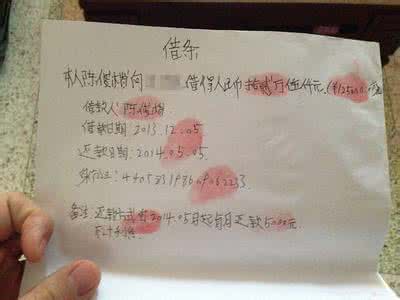 借条
本人陈俊楷向 借得人民币拾贰万伍仟元.(¥125000.
借款人:陈俊楷
借款日期:2013.12.05
还款日期:2014.05.05.
身份证:
备注:还款方式由2014.05月起每月还款5000元
不计利息.